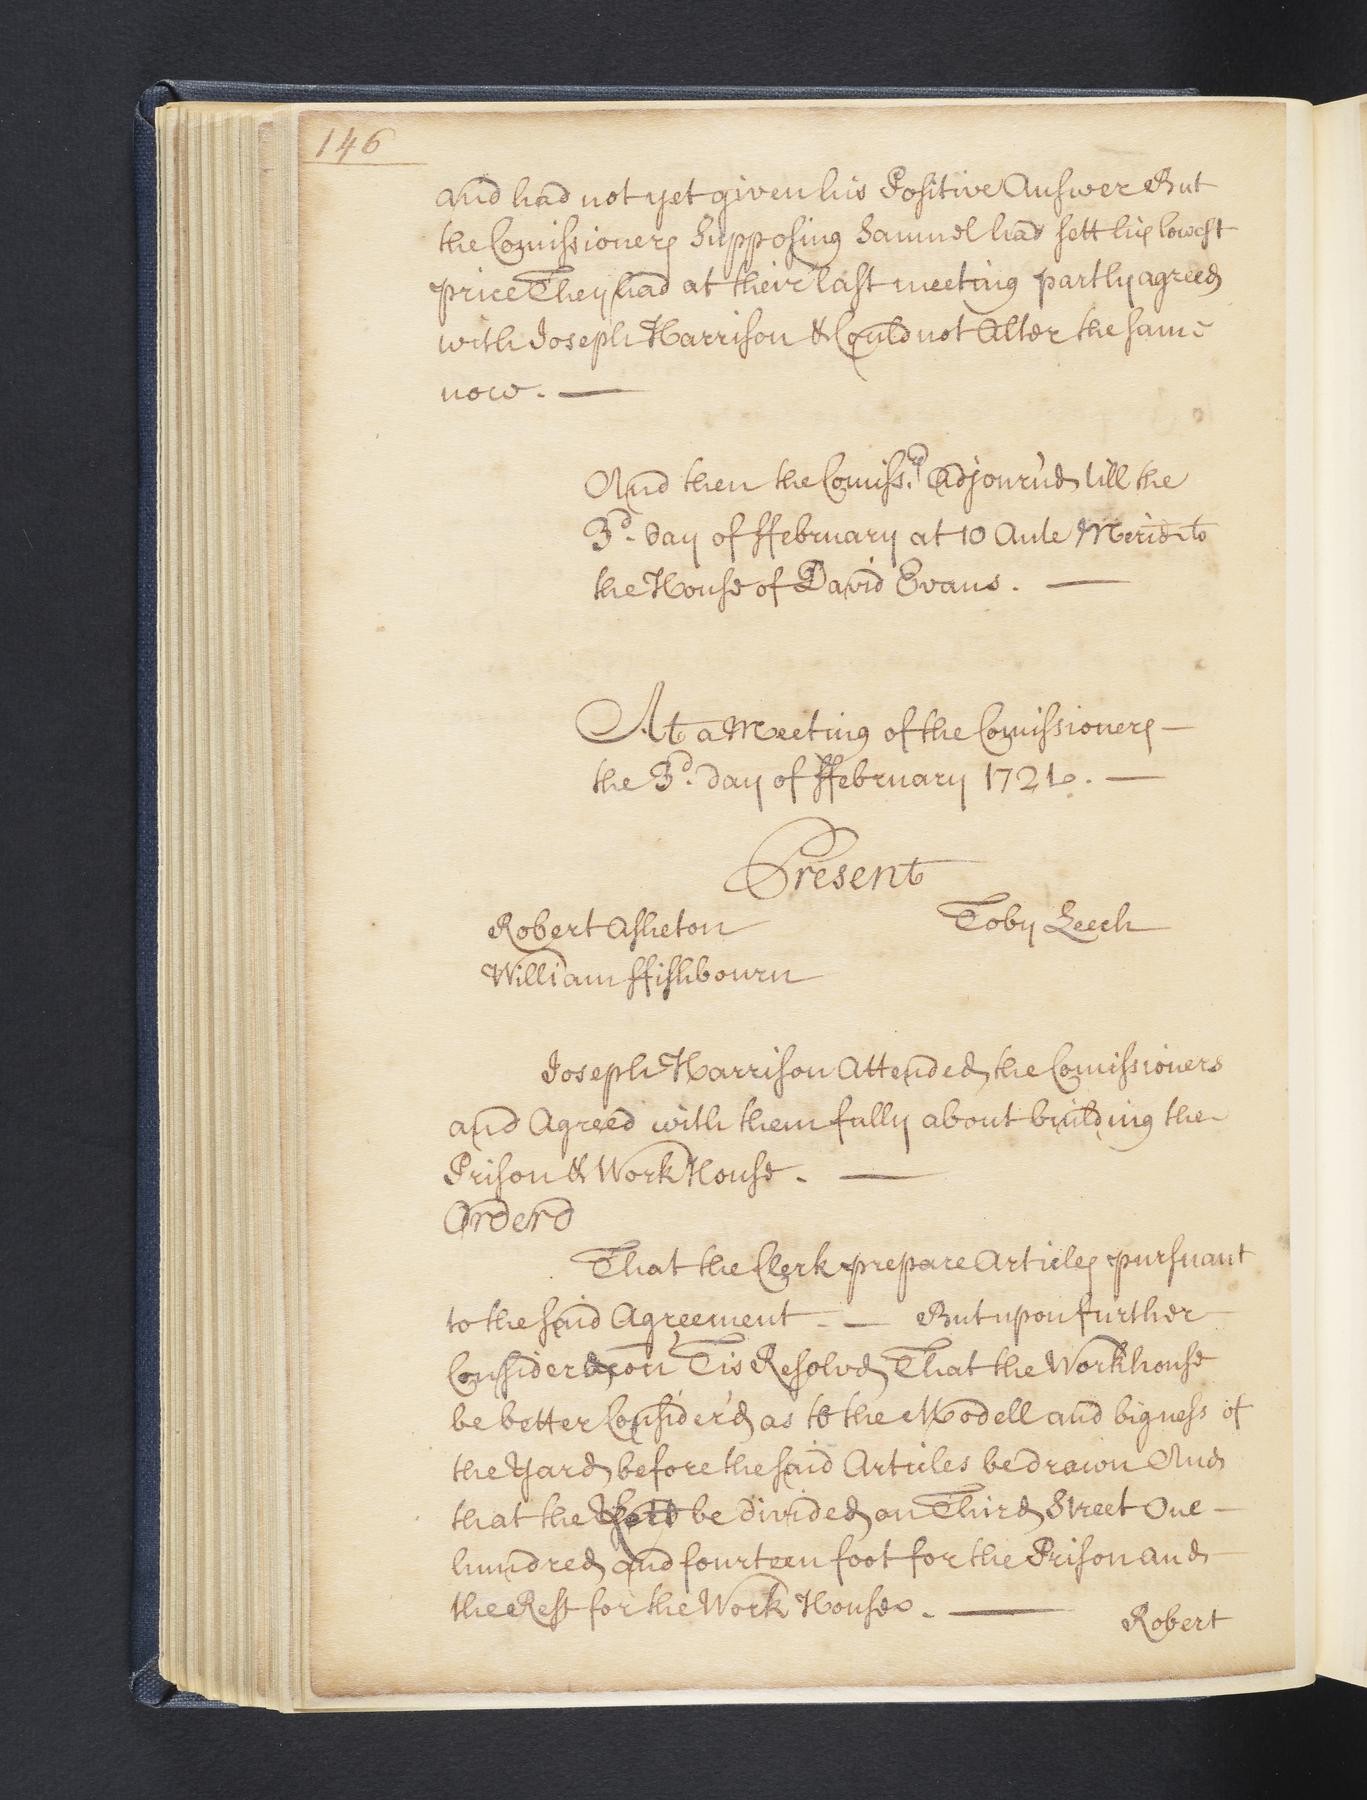 146
and had not yet given his Positive Answer But
the Comissioners Supposing Samuel had sett his lowest
price They had at their last meeting partly agreed
with Joseph Harrison & Could not Alter the same
now. —
And then the Comissrs. Adjourn'd till the
3d. day of ffebruary at 10 Ante Merid to
the House of David Evans. —
At a Meeting of the Comissioners —
the 3d. day of ffebruary 1721. —
Present
Robert Asheton Toby Leech
William ffishbourn
Joseph Harrison Attended the Comissioners
and Agreed with them fully about building the
Prison & Work House. —
Orderd
That the Clerk prepare Articles pursuant
to the said Agreement — But upon further
Consideracon Tis Resolvd That the Workhouse
be better Consider'd as to the Modell and bigness of
the Yard before the said Articles be drawn And
that the be divided on Third Street One —
hundred and fourteen foot for the Prison and
the Rest for the Work House. —
Robert